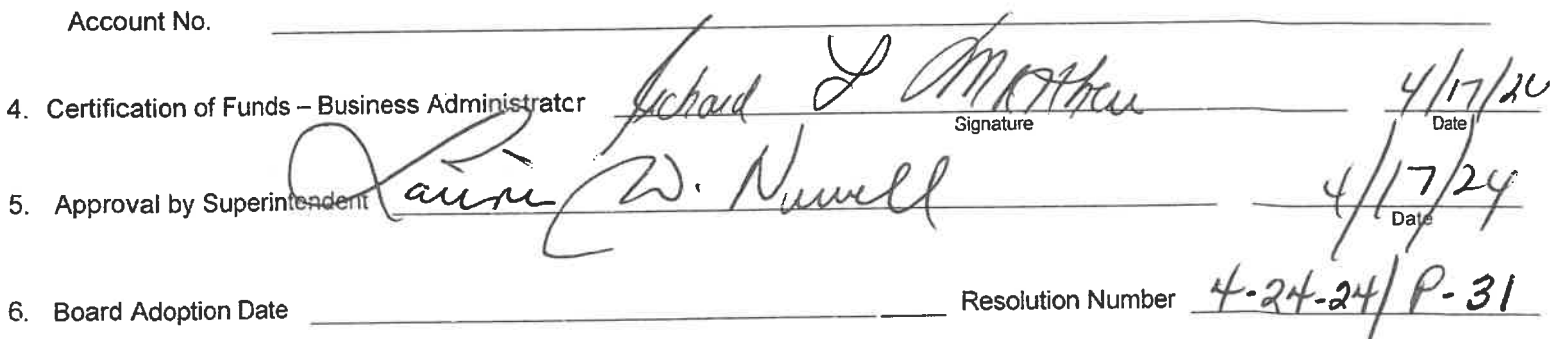 Account No.
4. Certification of Funds – Business Administrator Richard L Matthew 4/17/24
Signature Date
5. Approval by Superintendent W. Newell 4/17/24
Date
6. Board Adoption Date Resolution Number 4-24-24/ P-31